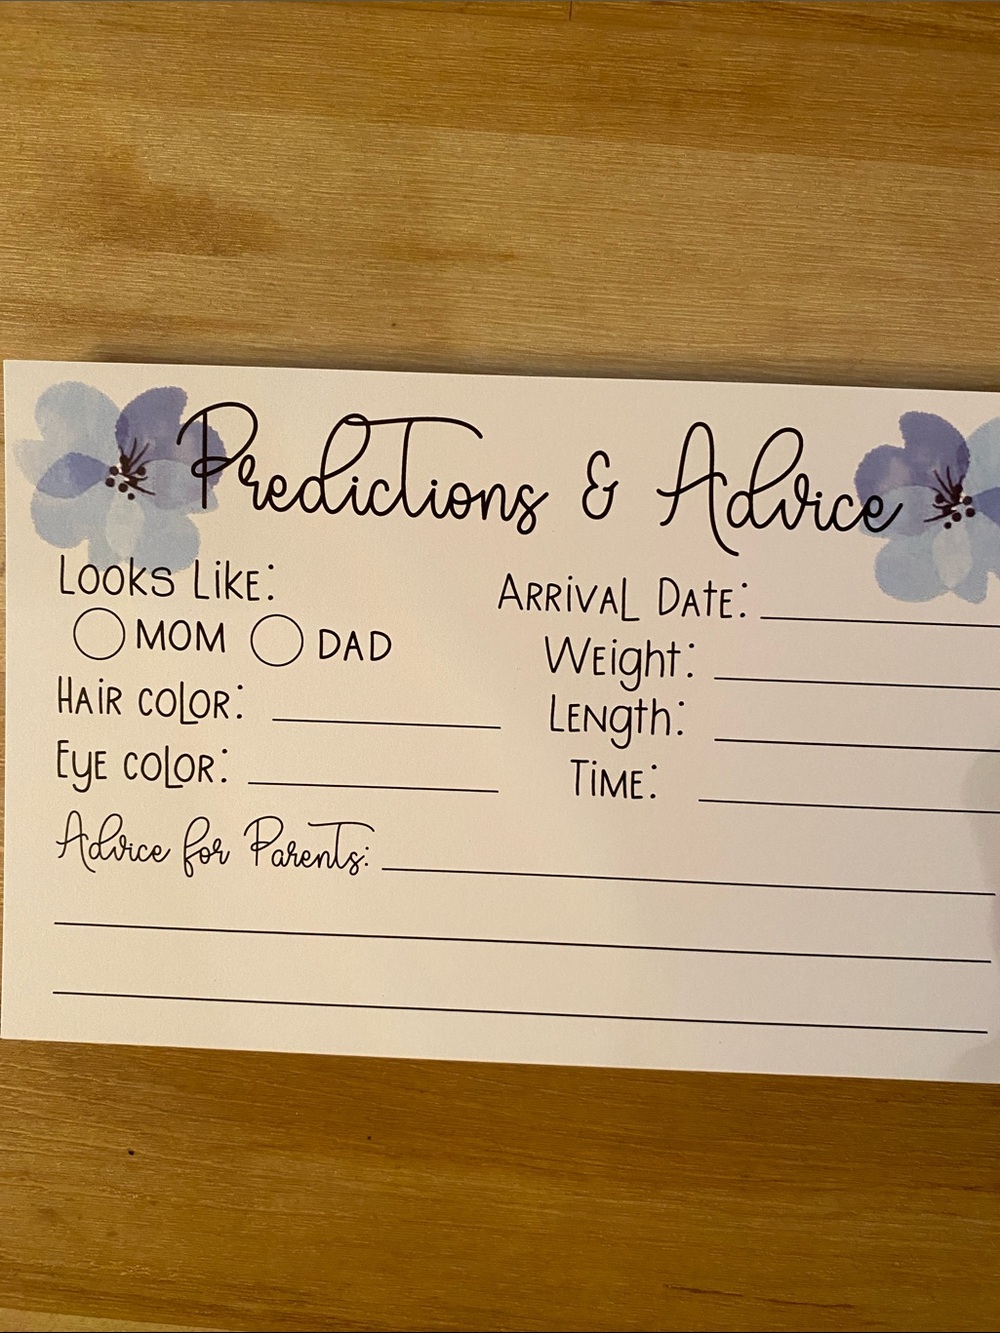 Predictions & Advice
Looks Like:
MOM DAD
Hair color:
Eye color:
Arrival Date:
Weight:
Length:
Time:
Advice for Parents: